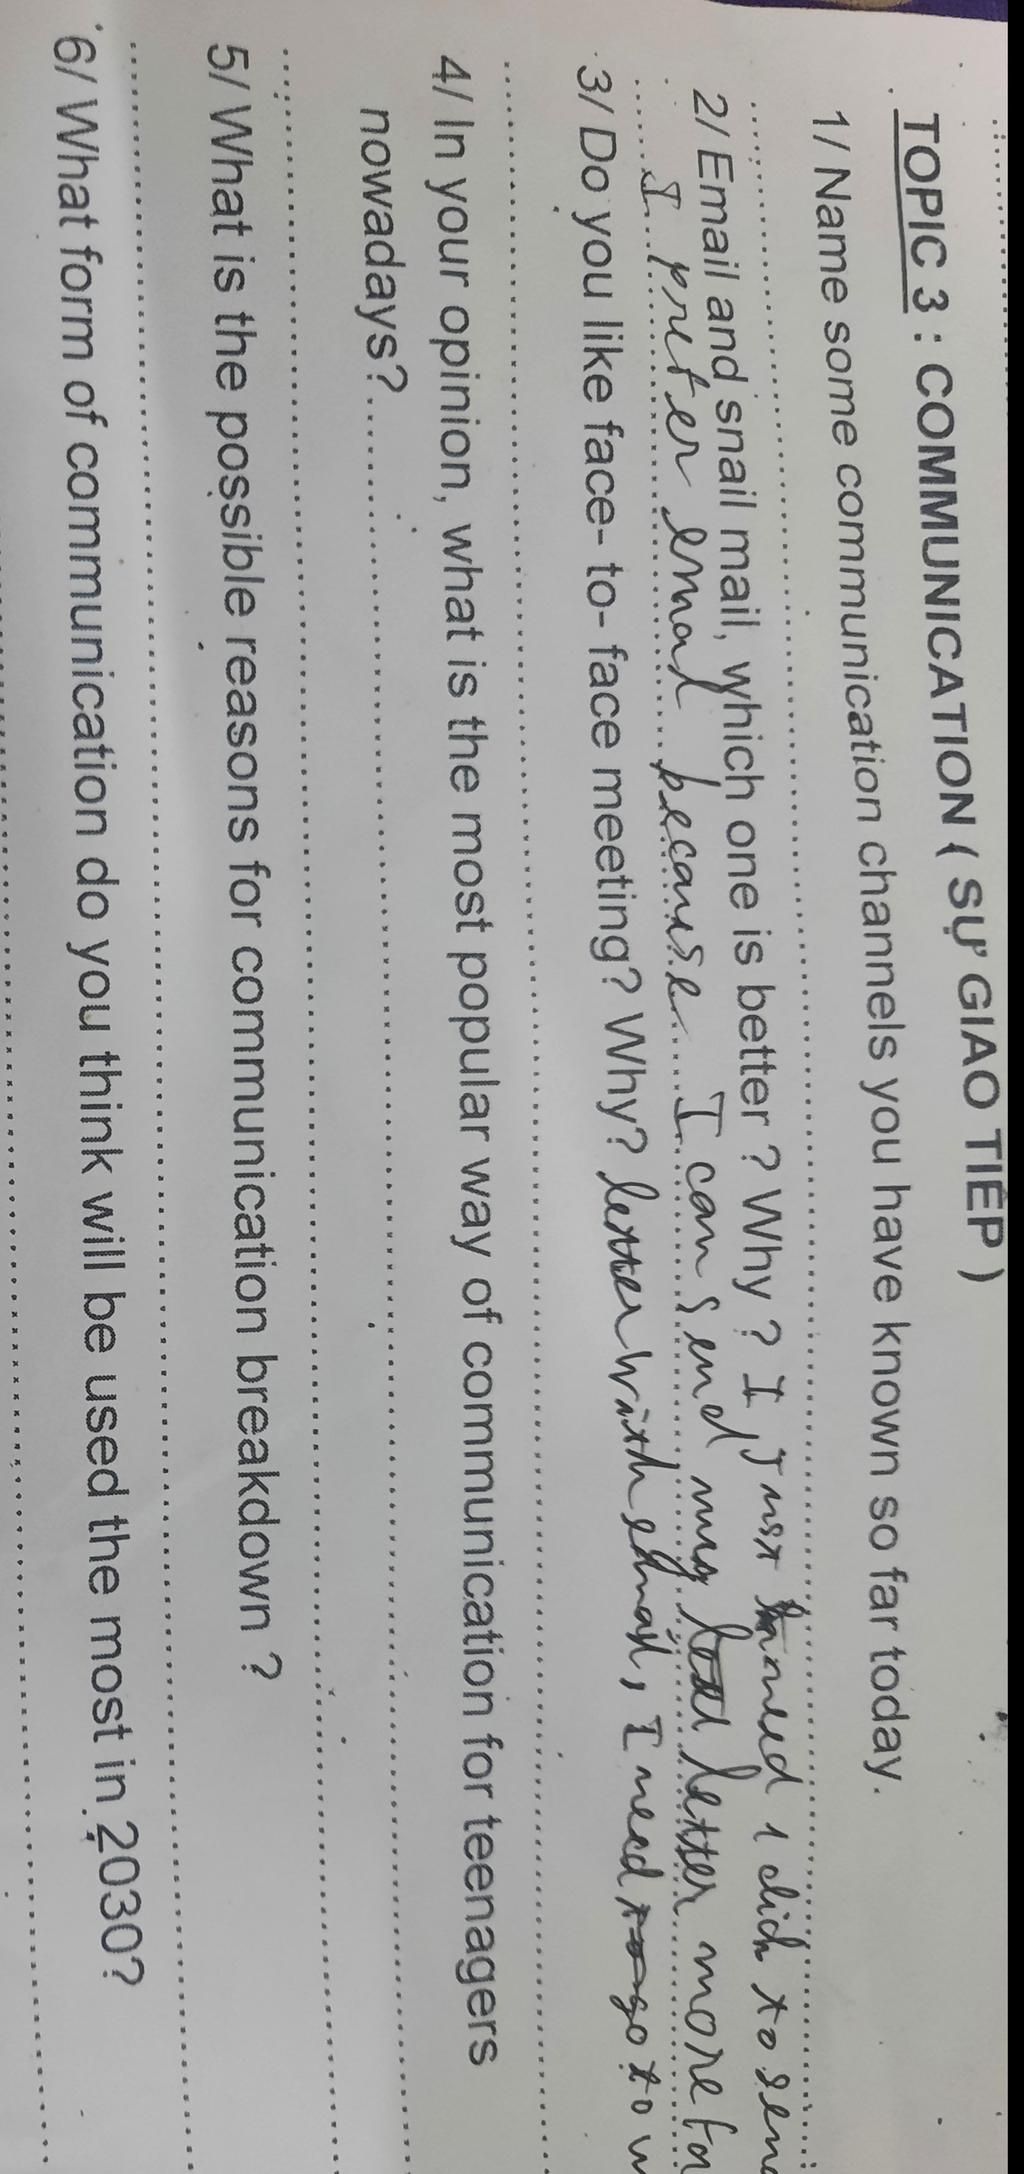 TOPIC 3 : COMMUNICATION ( SỰ GIAO TIẾP )
1/ Name some communication channels you have known so far today.
2/ Email and snail mail, which one is better ? Why ? I just need 1 click to send
I prefer email because I can send my letter more
3/ Do you like face- to- face meeting? Why? letter with email, I need to go to
4/ In your opinion, what is the most popular way of communication for teenagers
nowadays?
5/ What is the possible reasons for communication breakdown ?
6/ What form of communication do you think will be used the most in 2030?